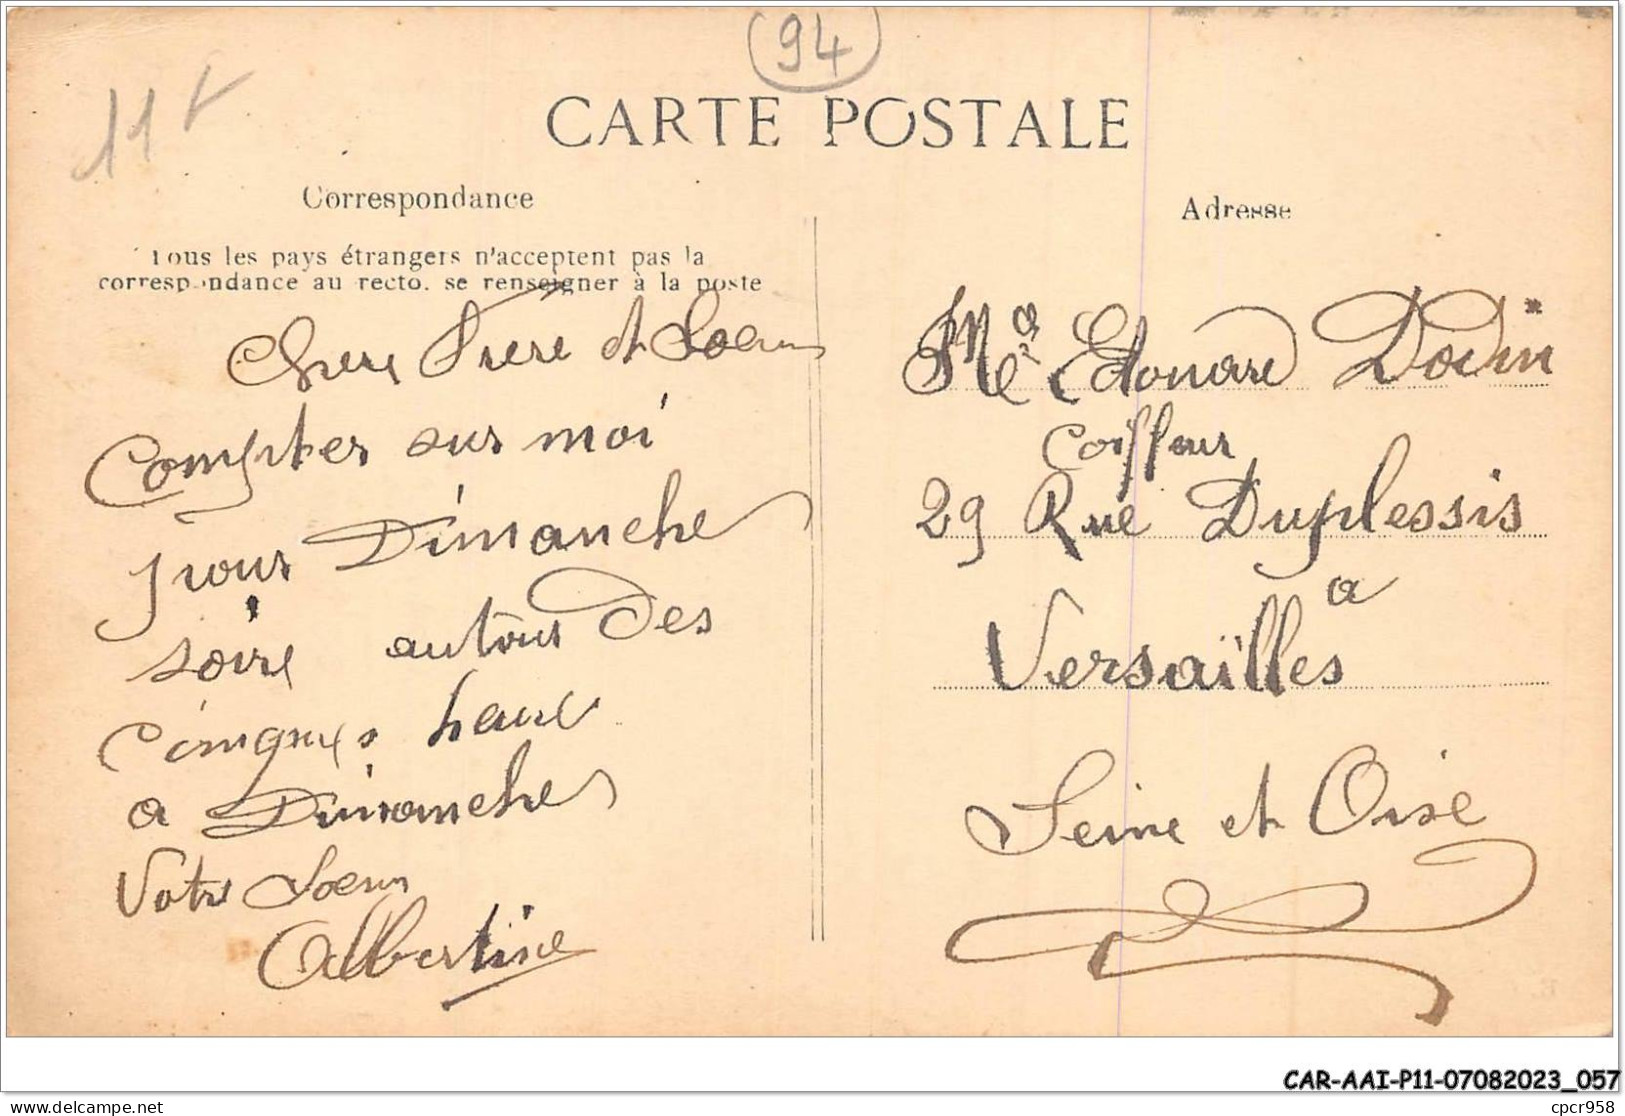 94
11 F
CARTE POSTALE
Correspondance
Tous les pays étrangers n'acceptent pas la
correspondance au recto. se renseigner à la poste
Chere Frere et Soeur
Compter sur moi
pour Dimanche
soire autour des
cinques heure
a Dimanche
Votre Soeur
Albertine
Adresse
Edouard Dodin
Coiffeur
29 Rue Duplessis
a
Versaïlles
Seine et Oise
CAR-AAI-P11-07082023_057
delcampe.net
cpcr958